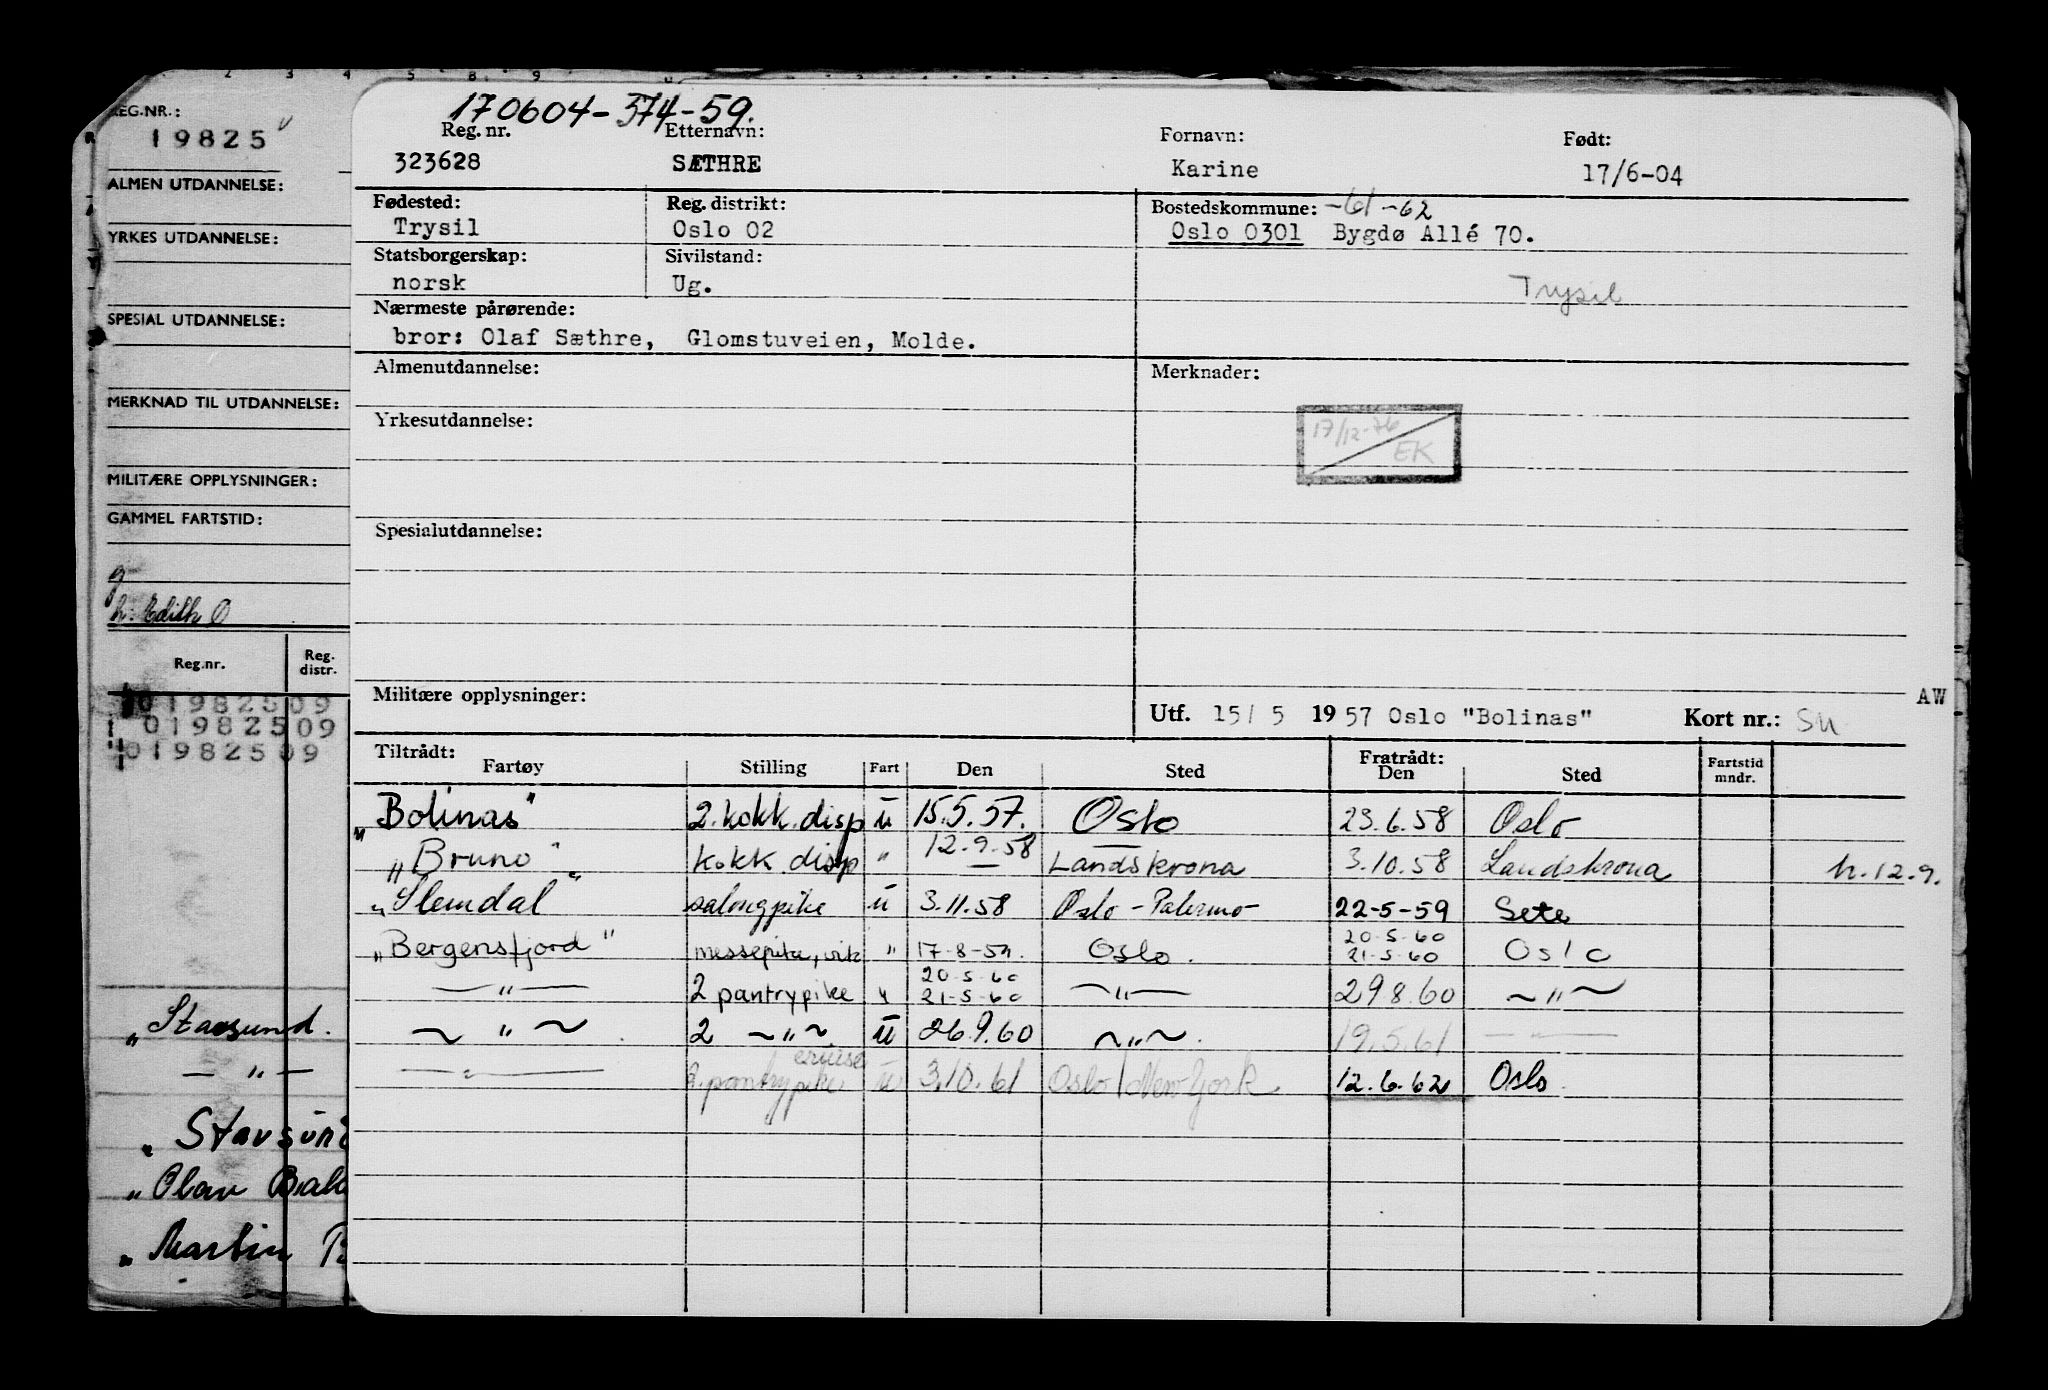 2 3 4 5 8 9
REG.NR.:
19825
ALMEN UTDANNELSE:
YRKES UTDANNELSE:
SPESIAL UTDANNELSE:
MERKNAD TIL UTDANNELSE:
MILITÆRE OPPLYSNINGER:
GAMMEL FARTSTID:
g
h: Edith O
Reg.nr. Reg. distr.
01982509
01982509
01982509
„Stavsund.
— " —
„Stavsund
„Olav Bak
„Martin B
170604-574-59.
Reg. nr. Etternavn: Fornavn: Født:
323628 SÆTHRE Karine 17/6-04
Fødested: Reg. distrikt: Bostedskommune: -61-62
Trysil Oslo 02 Oslo 0301 Bygdø Allé 70.
Statsborgerskap: Sivilstand:
norsk Ug. Trysil
Nærmeste pårørende:
bror: Olaf Sæthre, Glomstuveien, Molde.
Almenutdannelse: Merknader:
Yrkesutdannelse: 17/12-76
EK
Spesialutdannelse:
Militære opplysninger: AW
Utf. 15/5 1957 Oslo "Bolinas" Kort nr.:
Tiltrådt: Fratrådt:
Fartøy Stilling Fart Den Sted Den Sted Fartstid mndr.
„Bolinas" 2.kokk.disp ü 15.5.57. Oslo 23.6.58 Oslo
„Bruno" kokk disp " 12.9.58 Landskrona 3.10.58 Landskrona h.12.9.
„Slemdal salongpike ü 3.11.58 Oslo-Palermo 22-5-59 Sete
„Bergensfjord" messepike, vik " 17-8-59. Oslo. 20-5-60 21-5-60 Oslo
— " — 2 pantrypike " 20-5-60 21-5-60 — " — 29 8.60 ~ " ~
~ " ~ 2 ~ " ~ ü 26.9.60 ~ " ~. 19.5.61 — " —
— " — 2.pantrypike cruise ü 3.10.61 Oslo/New York 12.6.62 Oslo